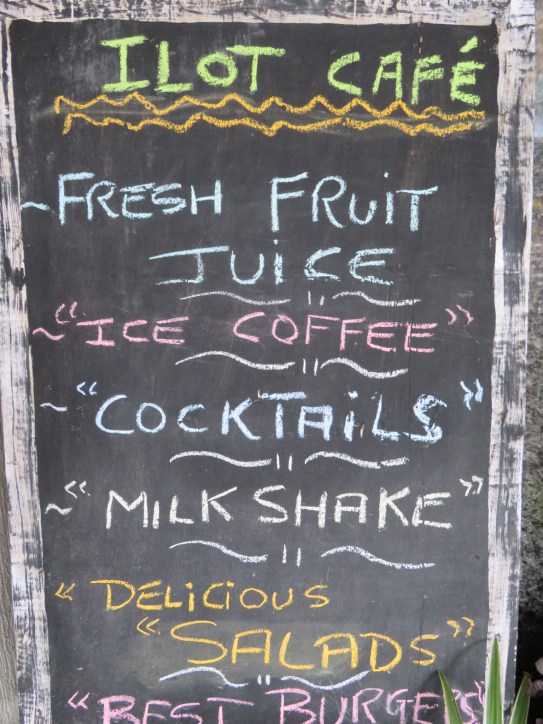 ILOT CAFÉ
~FRESH FRUIT
JUICE
~"ICE COFFEE"
~"COCKTAILS"
~"MILK SHAKE"
"DELICIOUS
"SALADS"
"BEST BURGERS